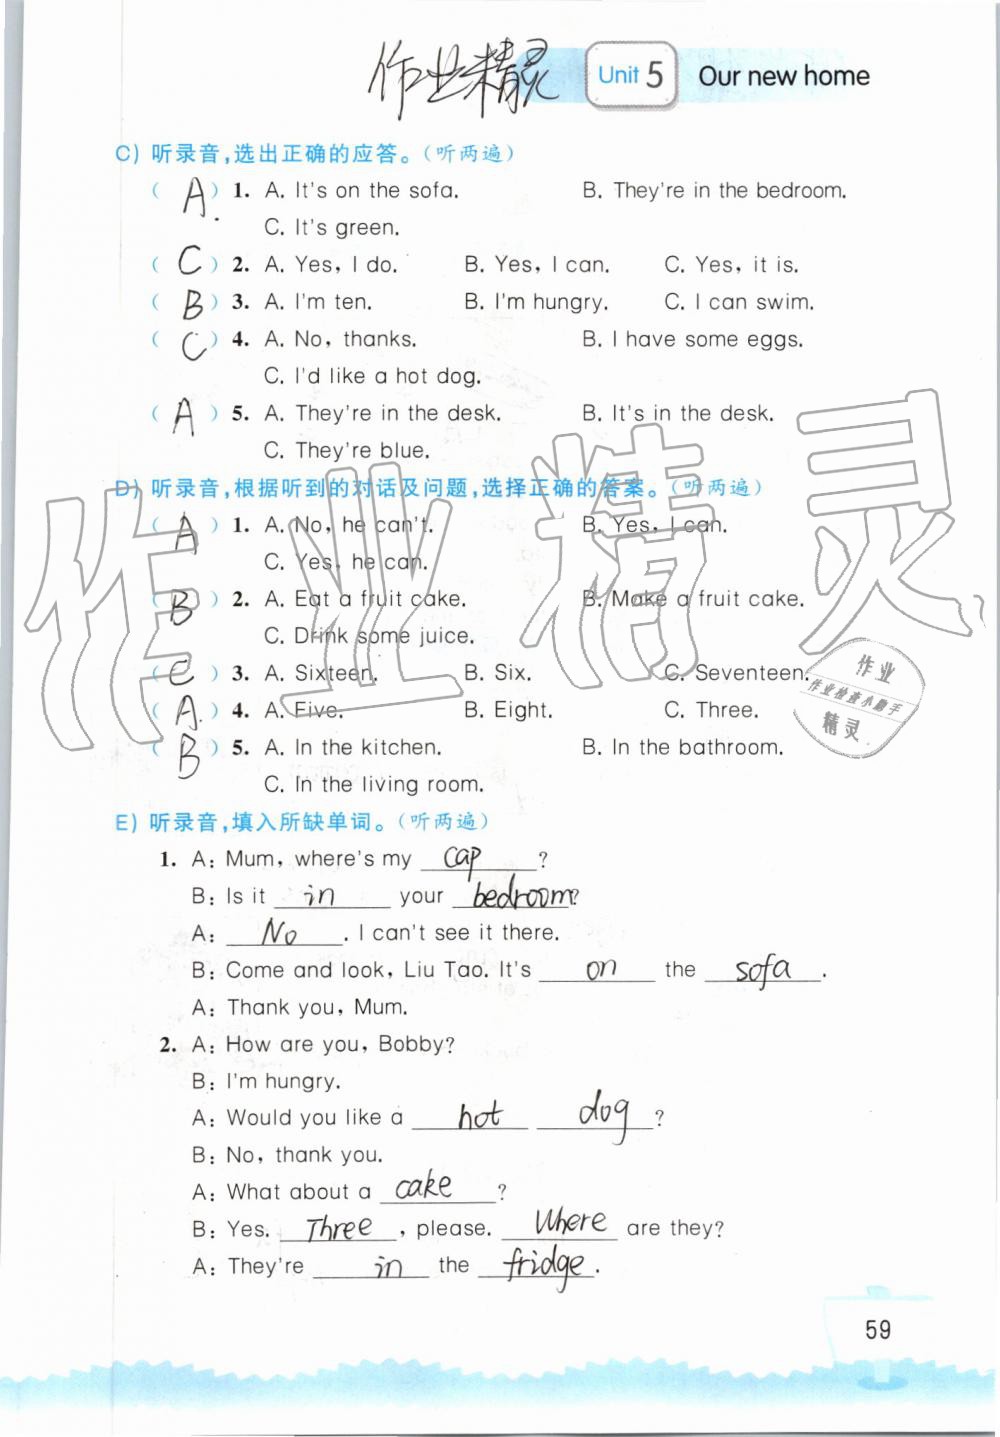 作业精灵 Unit 5 Our new home
C) 听录音,选出正确的应答。(听两遍)
( A. ) 1. A. It's on the sofa. B. They're in the bedroom.
C. It's green.
( C ) 2. A. Yes, I do. B. Yes, I can. C. Yes, it is.
( B ) 3. A. I'm ten. B. I'm hungry. C. I can swim.
( C ) 4. A. No, thanks. B. I have some eggs.
C. I'd like a hot dog.
( A ) 5. A. They're in the desk. B. It's in the desk.
C. They're blue.
D) 听录音,根据听到的对话及问题,选择正确的答案。(听两遍)
( A ) 1. A. No, he can't. B. Yes, I can.
C. Yes, he can.
( B ) 2. A. Eat a fruit cake. B. Make a fruit cake.
C. Drink some juice.
( C ) 3. A. Sixteen. B. Six. C. Seventeen.
( A. ) 4. A. Five. B. Eight. C. Three.
( B ) 5. A. In the kitchen. B. In the bathroom.
C. In the living room.
E) 听录音,填入所缺单词。(听两遍)
1. A: Mum, where's my cap ?
B: Is it in your bedroom?
A: No . I can't see it there.
B: Come and look, Liu Tao. It's on the sofa .
A: Thank you, Mum.
2. A: How are you, Bobby?
B: I'm hungry.
A: Would you like a hot dog ?
B: No, thank you.
A: What about a cake ?
B: Yes. Three , please. Where are they?
A: They're in the fridge .
59
作业精灵
作业
作业检查小助手
精灵